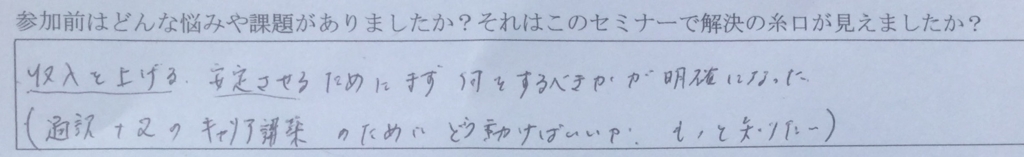 参加前はどんな悩みや課題がありましたか？それはこのセミナーで解決の糸口が見えましたか？
収入を上げる、安定させるためにまず何をするべきかが明確になった
(通訳+αのキャリア構築のためにどう動けばいいか、もっと知りたい)